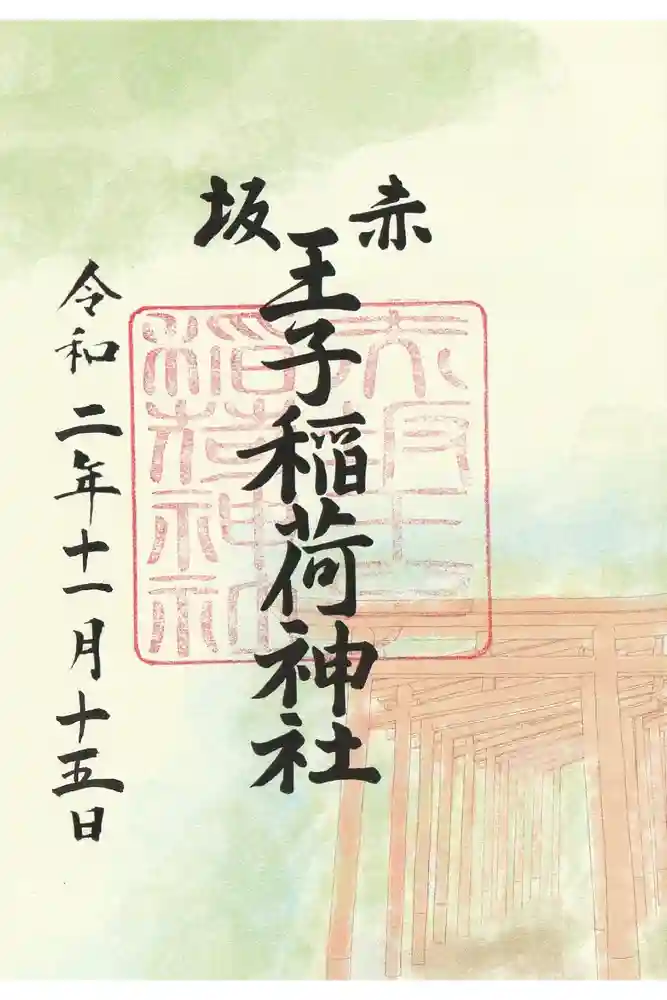 赤坂
王子稲荷神社
令和二年十一月十五日
赤坂王子
稲荷神社